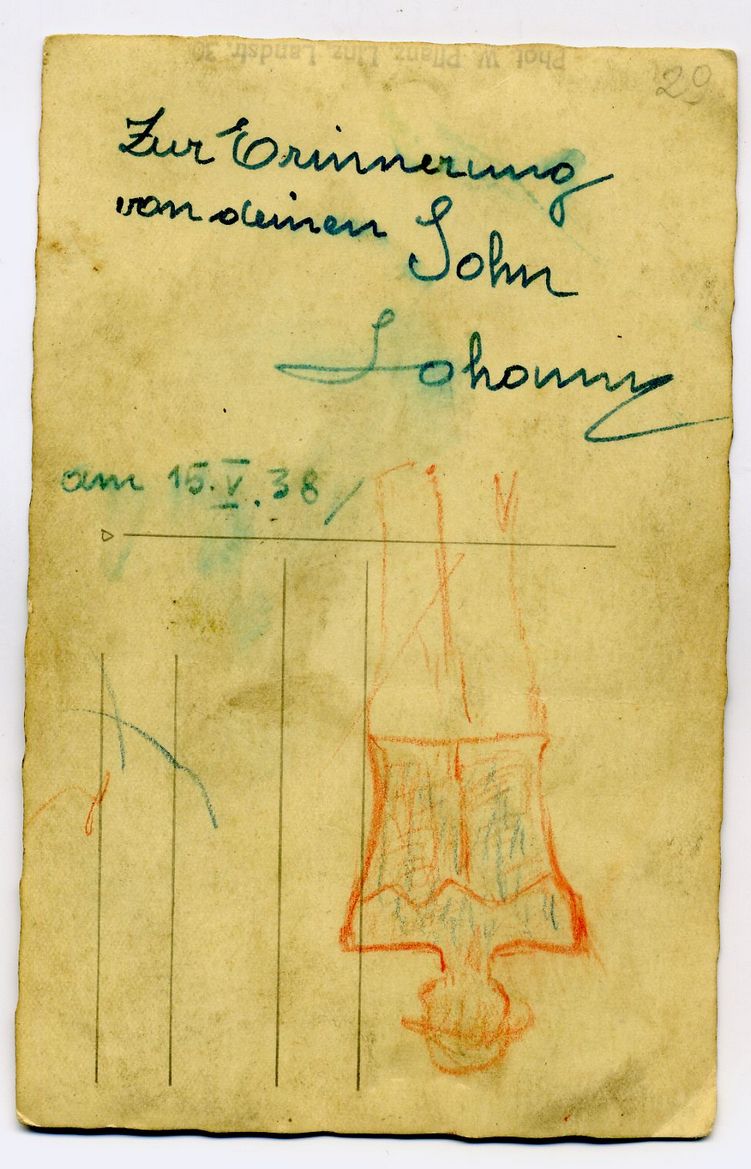 Phot. W. Pflanz, Linz, Landstr. 30
29
Zur Erinnerung
von deinen
Sohn
Johann
am 15.V.38